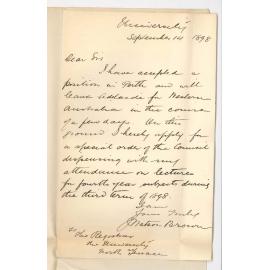 University
September 14 1898
Dear Sir
I have accepted a
position in Perth and will
leave Adelaide for Western
Australia in the course
of a few days. On this
ground I hereby apply for
a special order of the Council
dispensing with my
attendance on lectures
for fourth year subjects during
the third term of 1898.
I am
Yours truly
J Watson Brown
To the Registrar
The University
North Terrace